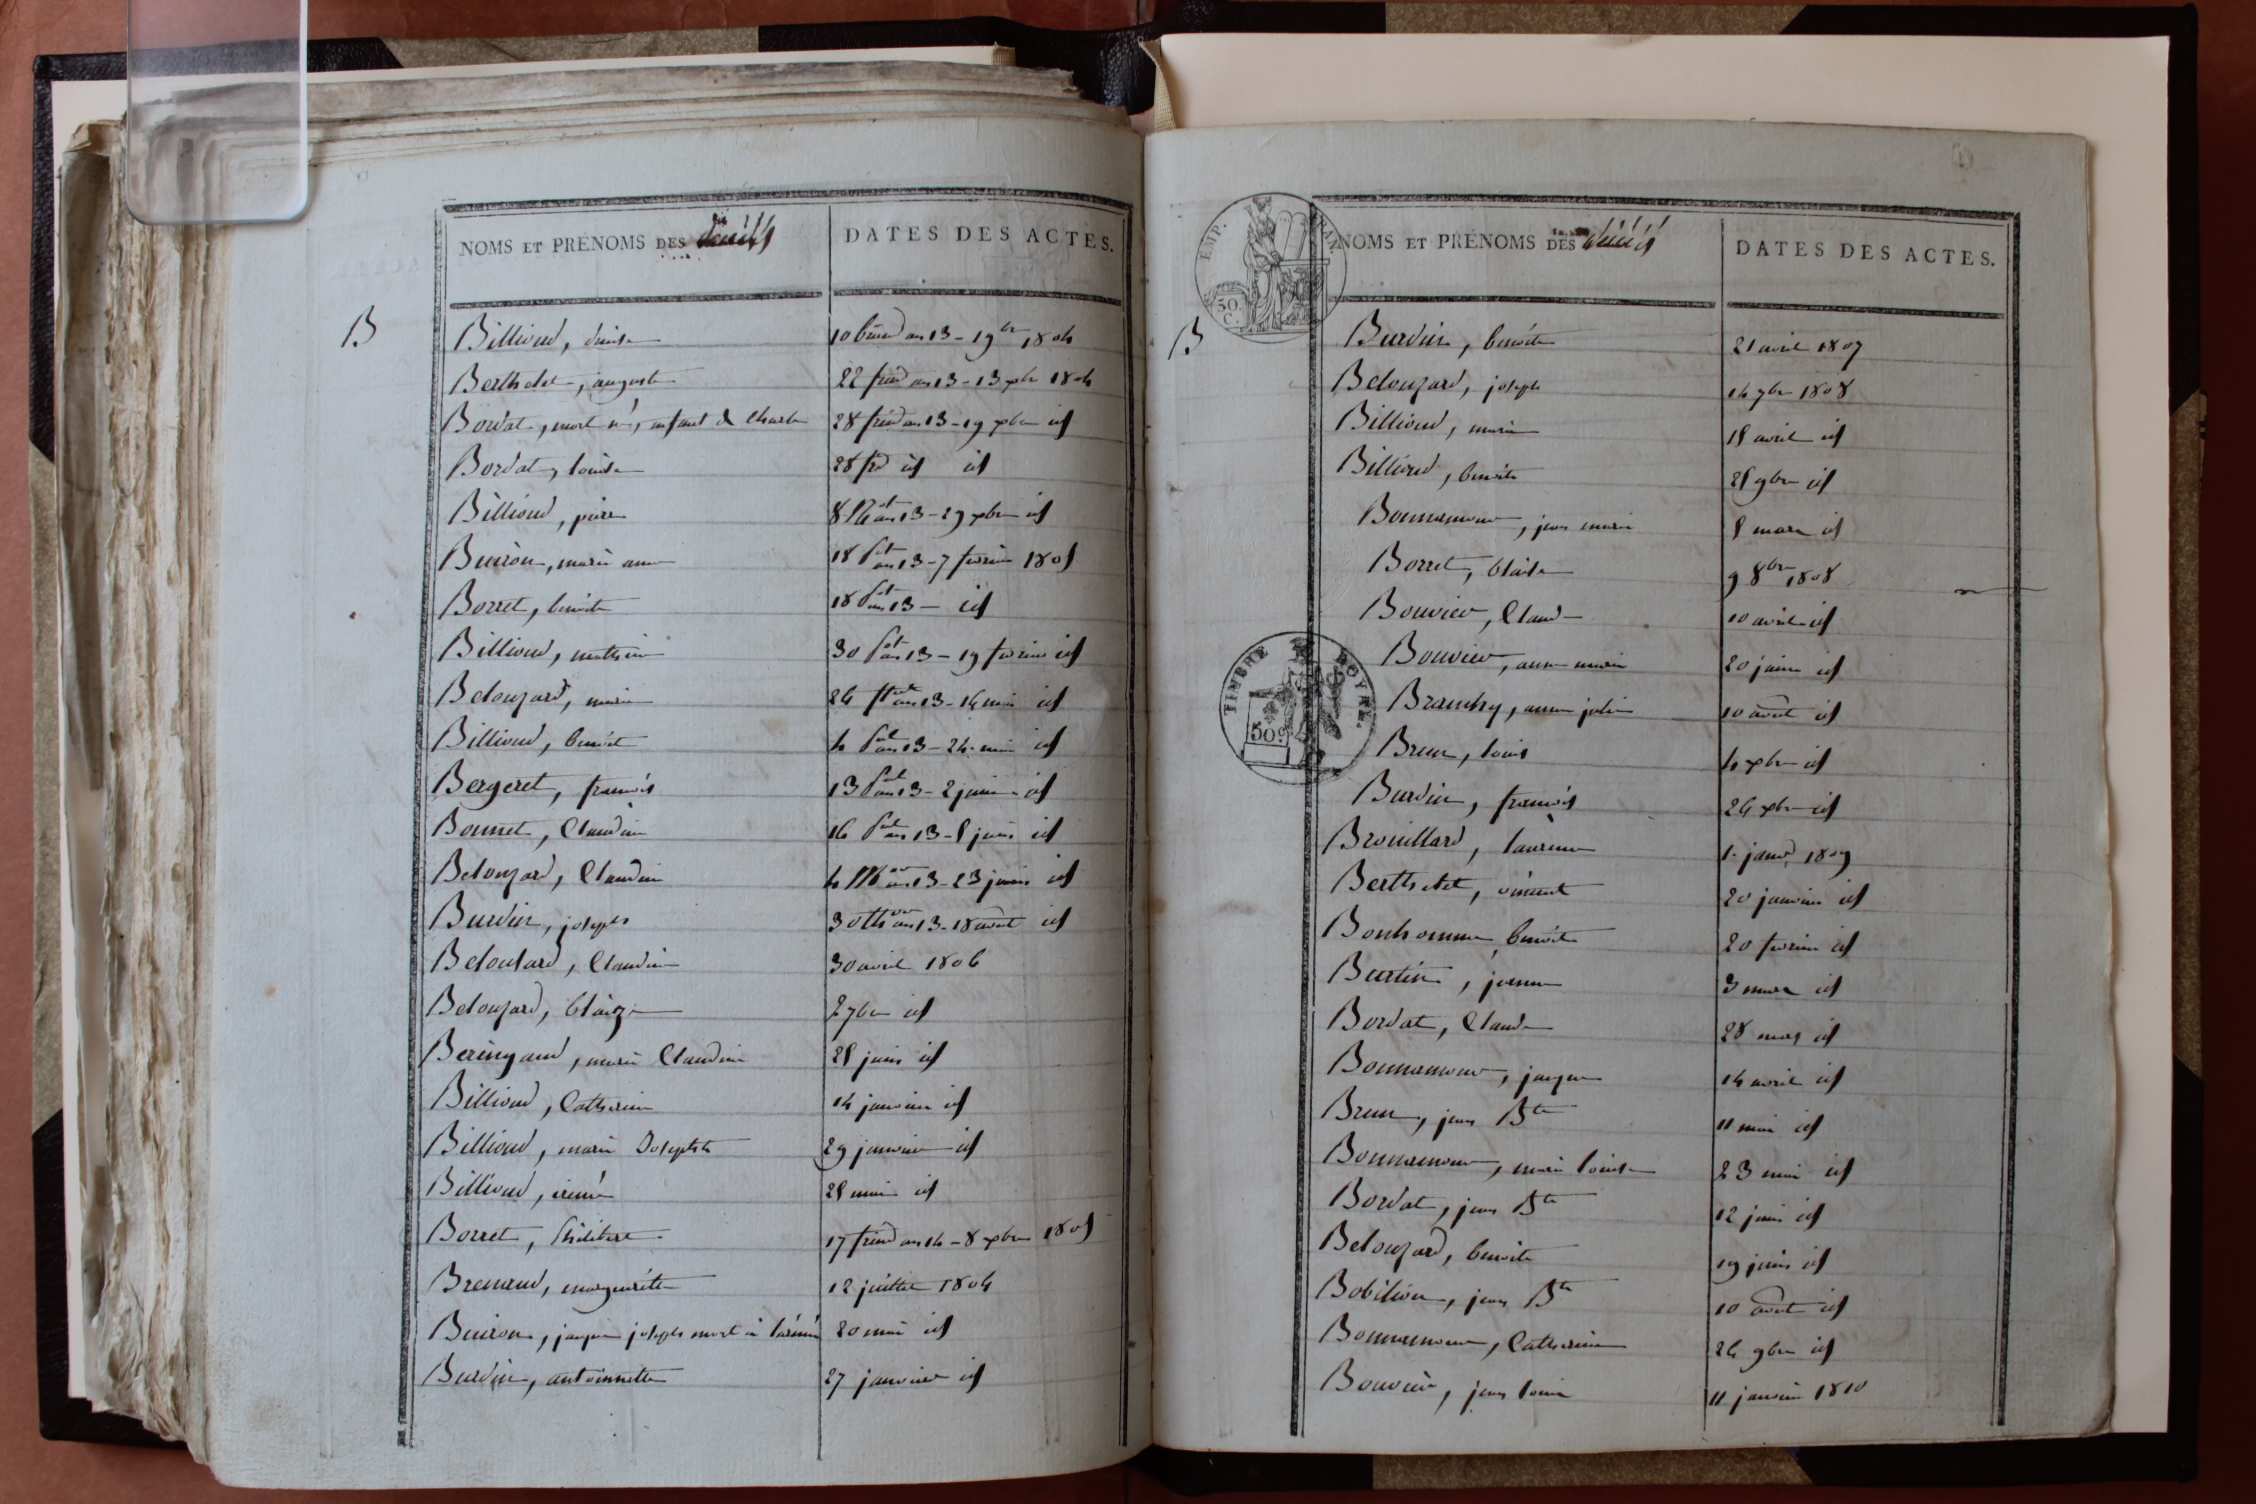 NOMS ET PRÉNOMS DES décédés
DATES DES ACTES.
B
Billioud, denise 10 brum an 13 - 1 9bre 1804
Berthelet, auguste 22 frim an 13 - 13 xbre 1804
Bordat, mort né, enfant de Charles 28 frim an 13 - 19 xbre id
Bordat, louise 28 fre id id
Billioud, pierre 8 niv an 13 - 29 xbre id
Buiron, marie anne 18 plot an 13 - 7 fevrier 1805
Borret, benoite 18 plot an 13 - id
Billioud, mathieu 30 plot an 13 - 19 fevrier id
Belouzard, marie 24 an 13 - 14 mai id
Billioud, benoit 4 an 13 - 24 mai id
Bergeret, francois 13 an 13 - 2 juin id
Bonnet, Claudine 16 an 13 - 5 juin id
Belouzard, Claudine 4 Mor an 13 - 23 juin id
Burdin, joseph 30 thor an 13 - 18 aout id
Beloulard, Claudine 30 avril 1806
Belouzard, blaize 2 7bre id
Beringaud, marie Claudine 25 juin id
Billioud, Catherine 14 janvier id
Billioud, marie Josephte 29 janvier id
Billioud, irené 25 mai id
Borret, Philibert 17 frim an 14 - 8 xbre 1805
Brenaud, marguerite 12 juillet 1804
Buiron, jacques joseph mort à l'armée 20 mai id
Burdin, antoinette 27 janvier id
EMP. FRAN.
50 C.
NOMS ET PRÉNOMS DES décédés
DATES DES ACTES.
B
Burdin, benoite 21 avril 1807
Belouzard, joseph 14 7bre 1808
Billioud, marie 15 avril id
Billioud, benoite 25 9bre id
Bonnamour, jean marie 5 mars id
Borret, blaise 9 8bre 1808
Bouvier, Claude 10 avril id
Bouvier, anne marie 20 juin id
TIMBRE ROYAL.
50 c
anne julie 10 aout id
Brun, louis 4 xbre id
Burdin, francois 24 xbre id
Brouillard, laurence 1. janvr 1809
Berthelet, vincent 20 janvier id
Bonhomme, benoite 20 fevrier id
Burtin, jeanne 3 mars id
Bordat, Claude 28 mars id
Bonnamour, jacques 14 avril id
Brun, jean Bte 11 mai id
Bonnamour, marie louise 23 mai id
Bordat, jean Bte 12 juin id
Belouzard, benoite 19 juin id
Bobilion, jean Bte 10 aout id
Bonnamour, Catherine 24 9bre id
Bouvier, jean louis 11 janvier 1810